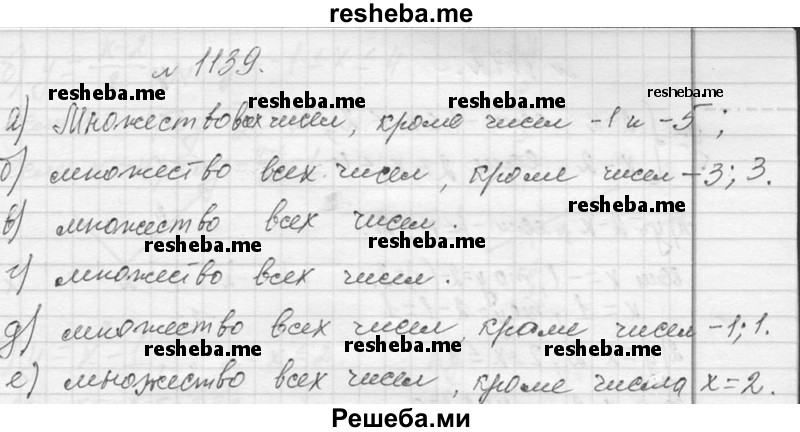 resheba.me
№ 1139.
resheba.me resheba.me resheba.me resheba.me
а) Множество всех чисел, кроме чисел -1 и -5;
б) множество всех чисел, кроме чисел -3; 3.
resheba.me
в) множество всех чисел.
resheba.me resheba.me
г) множество всех чисел.
д) множество всех чисел, кроме чисел -1; 1.
resheba.me resheba.me resheba.me
е) множество всех чисел, кроме числа x=2.
Решеба.ми